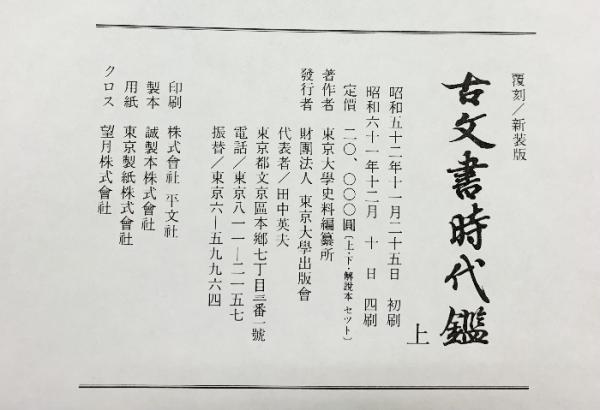 覆刻／新装版
古文書時代鑑
上
昭和五十二年十一月二十五日 初刷
昭和六十一年十二月 十 日 四刷
定價 二〇、〇〇〇圓〔上・下・解説本セット〕
著作者 東京大學史料編纂所
發行者 財團法人 東京大學出版會
代表者／田中英夫
東京都文京區本郷七丁目三番一號
電話／東京八一一―二一五七
振替／東京六―五九九六四
印刷 株式會社 平文社
製本 誠製本株式會社
用紙 東京製紙株式會社
クロス 望月株式會社